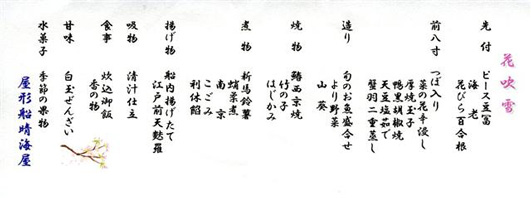 花吹雪
先付
ピース豆冨
海老
花びら百合根
前八寸
つぼ入り
菜の花辛浸し
厚焼玉子
鴨黒胡椒焼
天豆塩茹で
蟹羽二重蒸し
造り
旬のお魚盛合せ
より野菜
山葵
焼物
鰆西京焼
竹の子
はじかみ
煮物
新馬鈴薯
蛸柔煮
南京
こごみ
利休餡
揚げ物
船内揚げたて
江戸前天麩羅
吸物
清汁仕立
食事
炊込御飯
香の物
甘味
白玉ぜんざい
水菓子
季節の果物
屋形船晴海屋